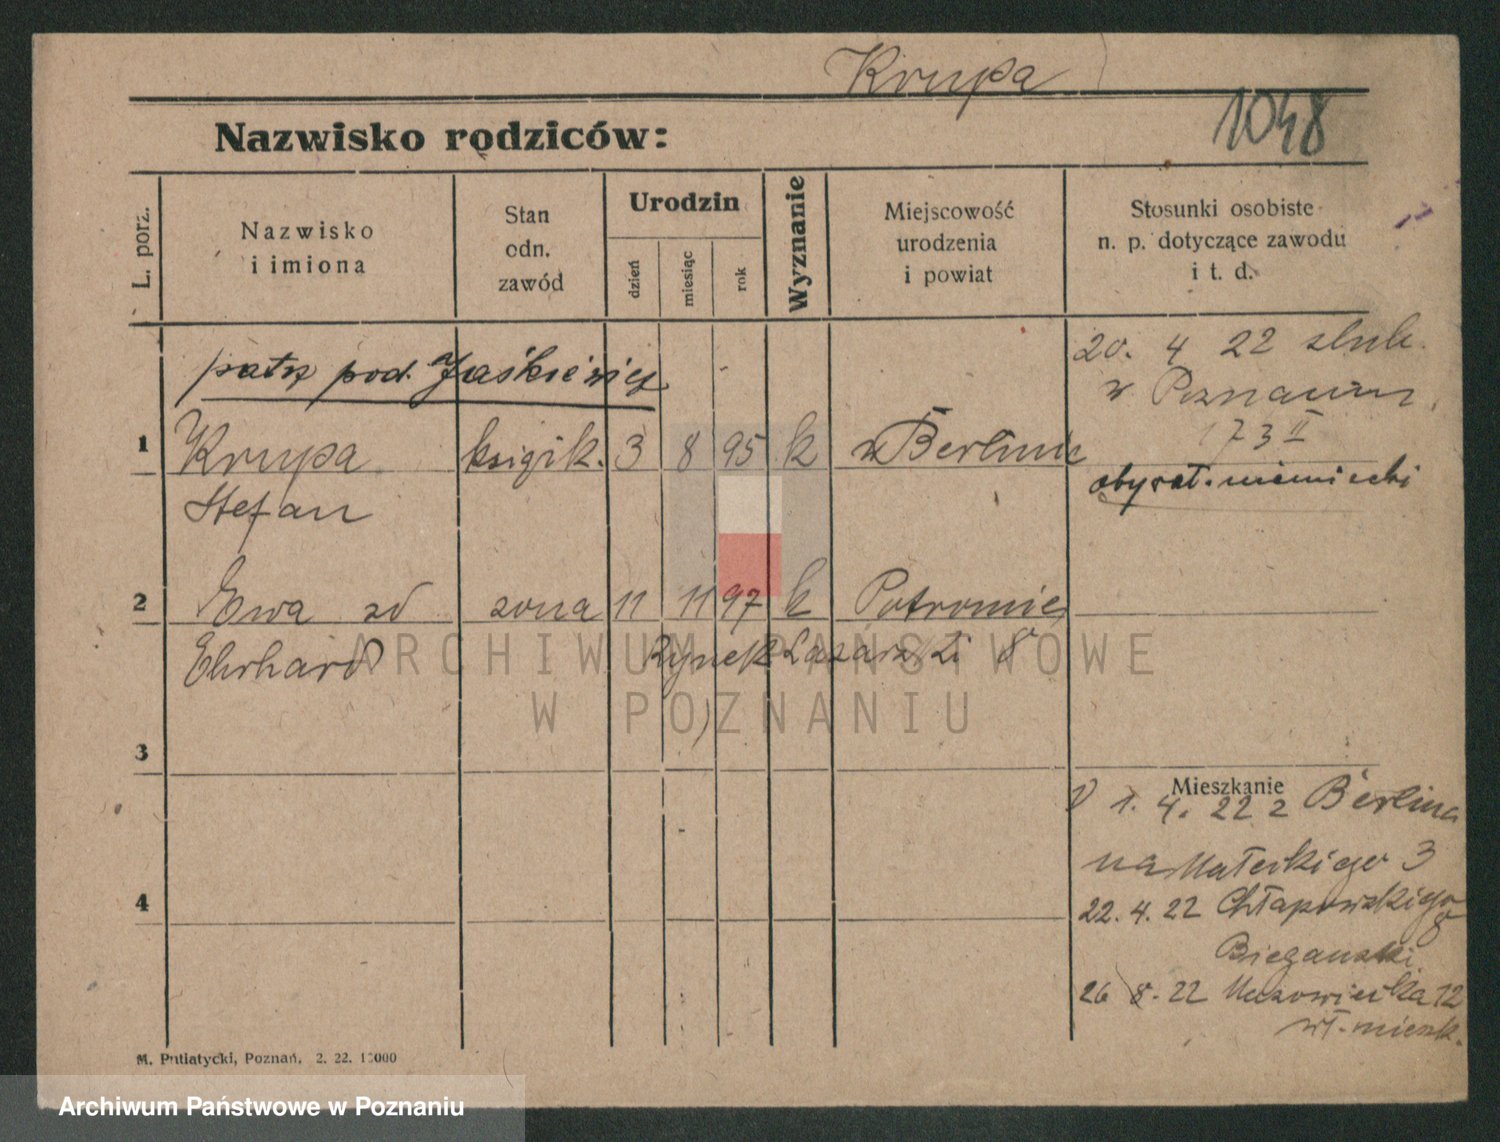 Krupa
1048
Nazwisko rodziców:
L. porz.
Nazwisko
i imiona
Stan
odn.
zawód
Urodzin
dzień
miesiąc
rok
Wyznanie
Miejscowość
urodzenia
i powiat
Stosunki osobiste
n. p. dotyczące zawodu
i t. d.
patrz pod. Jaśkiewicz
20. 4 22 ślub.
w Poznaniu
73 II
1 Krupa księgik. 3 8 95 k w Berlinie
obywat. niemiecki
Stefan
2 Ewa zd żona 11 11 97 k
Ehrhard Rynek Łazarski 8
ARCHIWUM PAŃSTWOWE
W POZNANIU
3
Mieszkanie
1. 4. 22 z Berlina
na Małeckiego 3
4
22. 4. 22 Chłapowskiego
8
Biegański
26 8. 22 Mazowiecka 12
wł. mieszk.
M. Putiatycki, Poznań, 2. 22. 10000
Archiwum Państwowe w Poznaniu